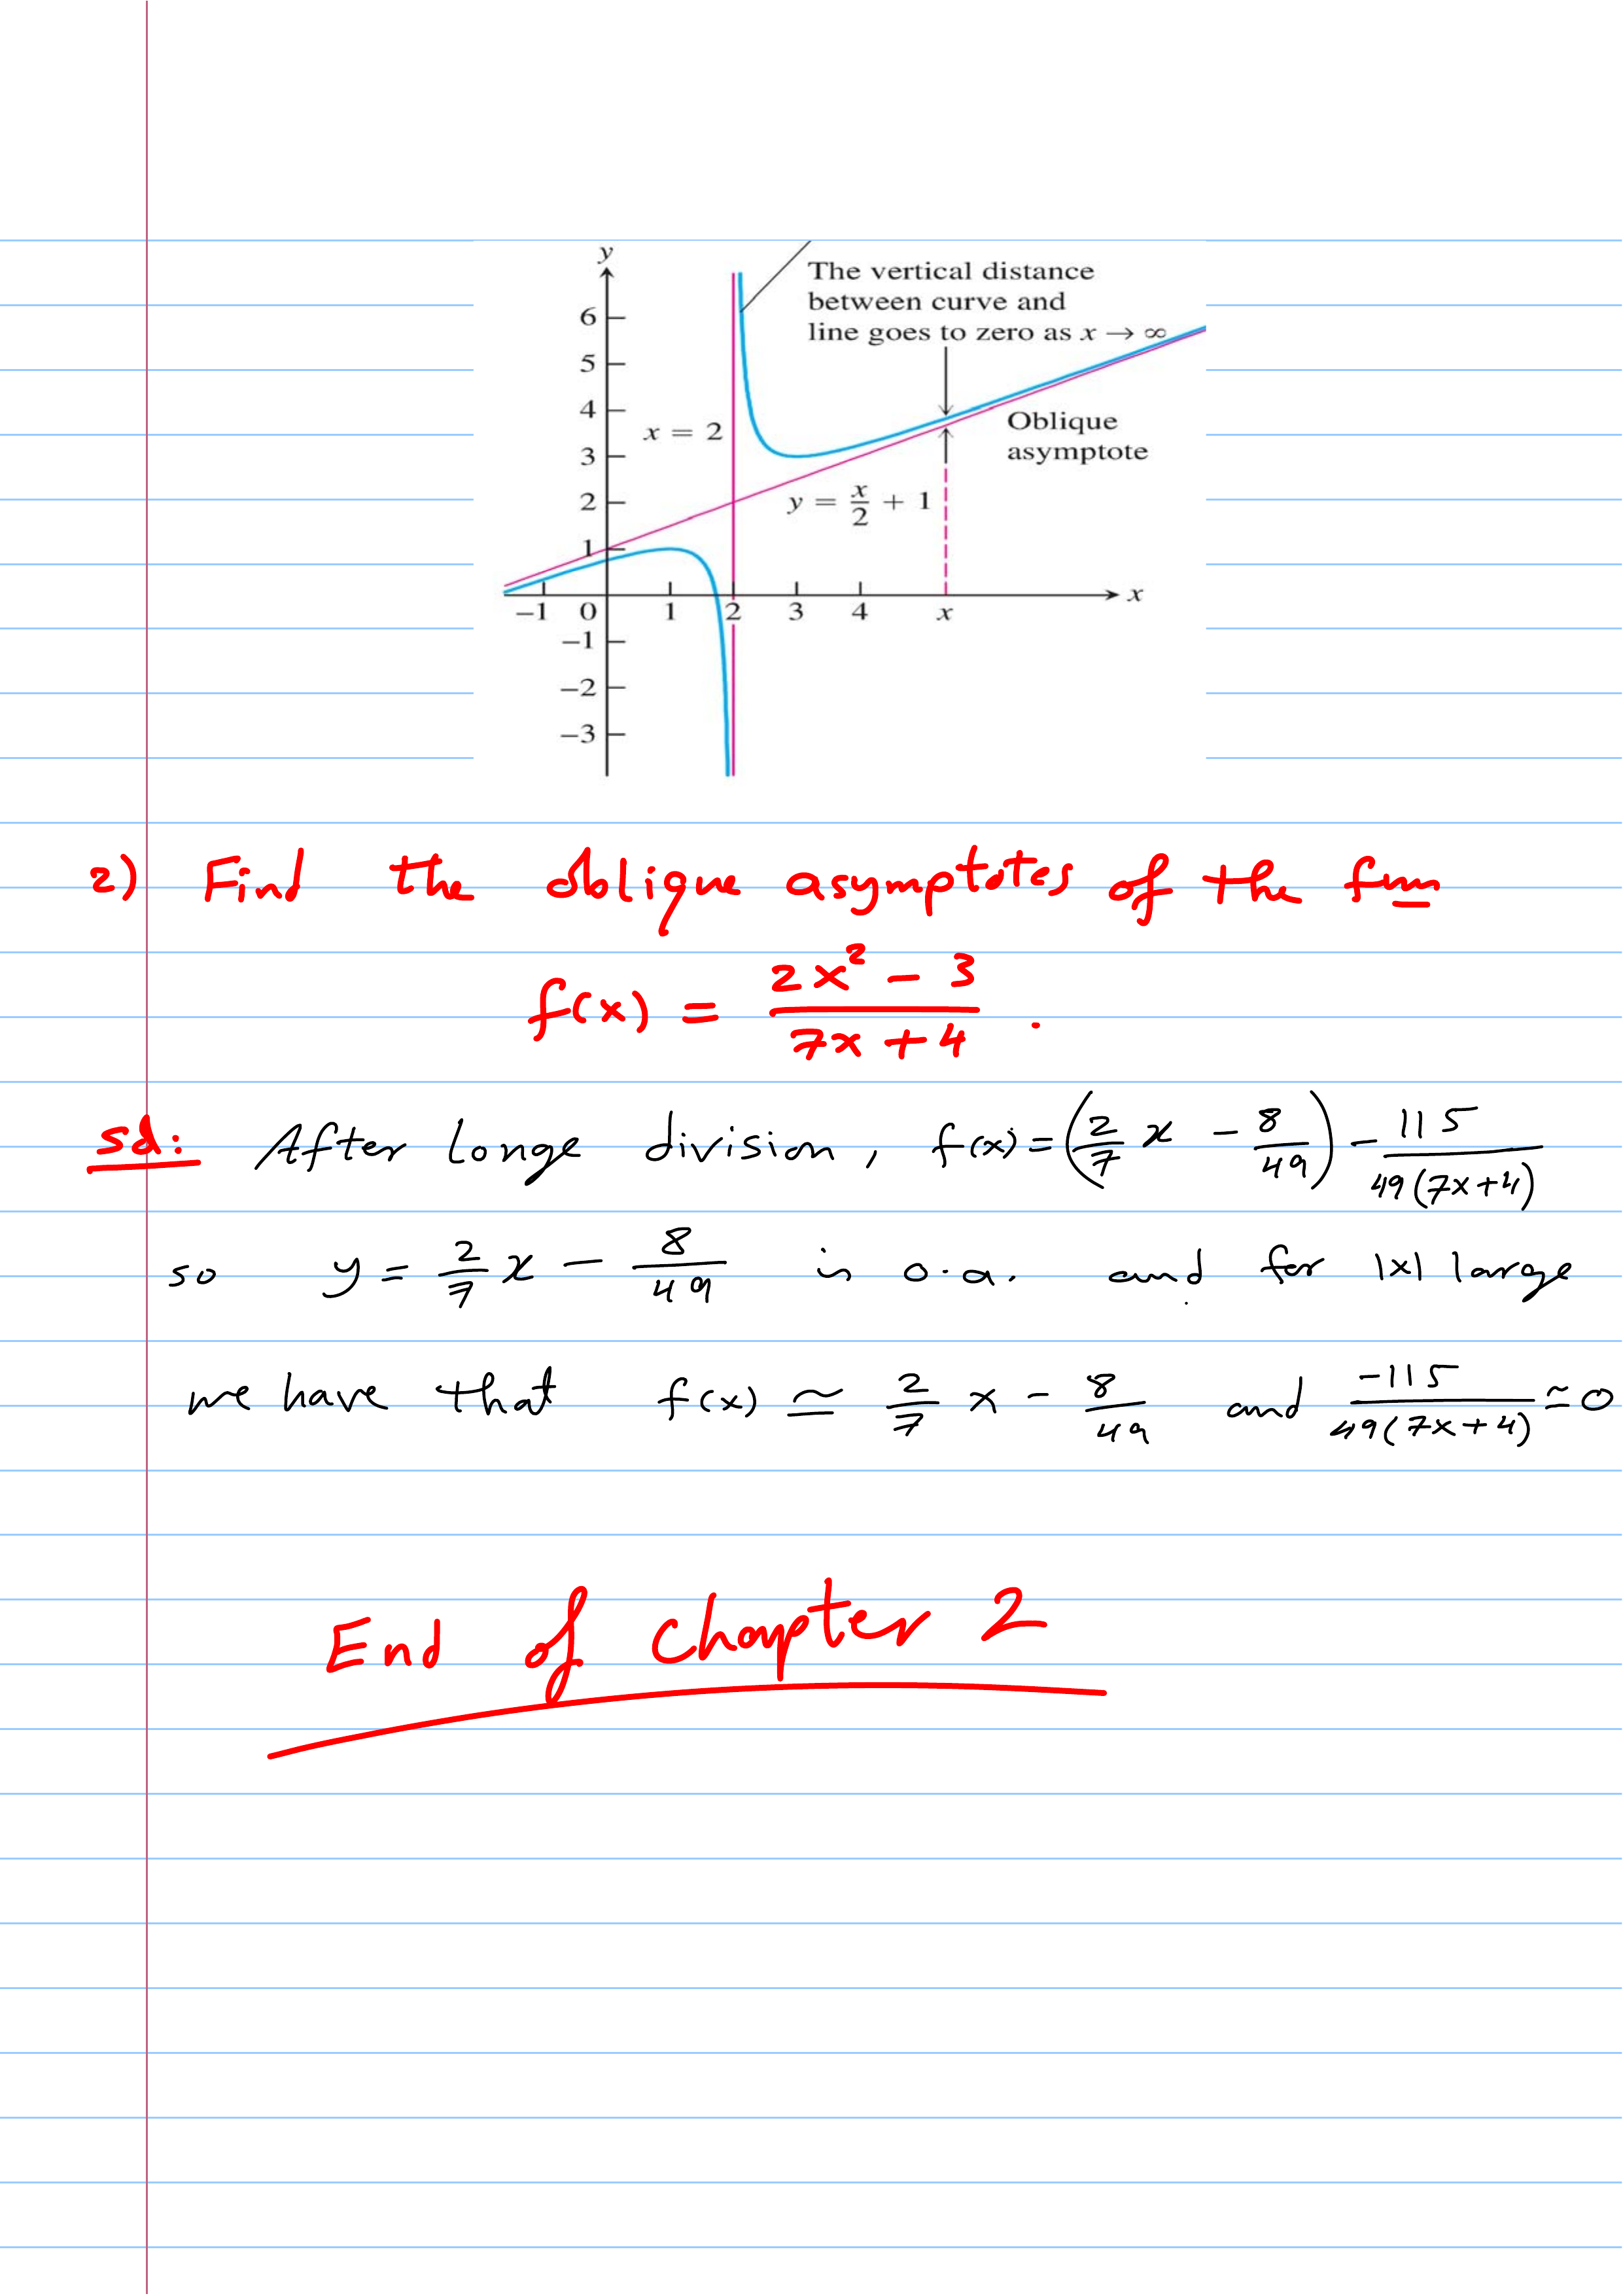 y
The vertical distance
between curve and
line goes to zero as x → ∞
6
5
4
x = 2
Oblique
asymptote
3
2
y = x/2 + 1
1
−1 0 1 2 3 4 x
x
−1
−2
−3
2) Find the oblique asymptotes of the fun
f(x) = (2x² − 3)/(7x + 4) .
Sol: After Longe division, f(x) = (2/7 x − 8/49) − 115/(49(7x+4))
so y = 2/7 x − 8/49 is o.a. and for |x| large
we have that f(x) ≃ 2/7 x − 8/49 and −115/(49(7x+4)) ≃ 0
End of Chapter 2